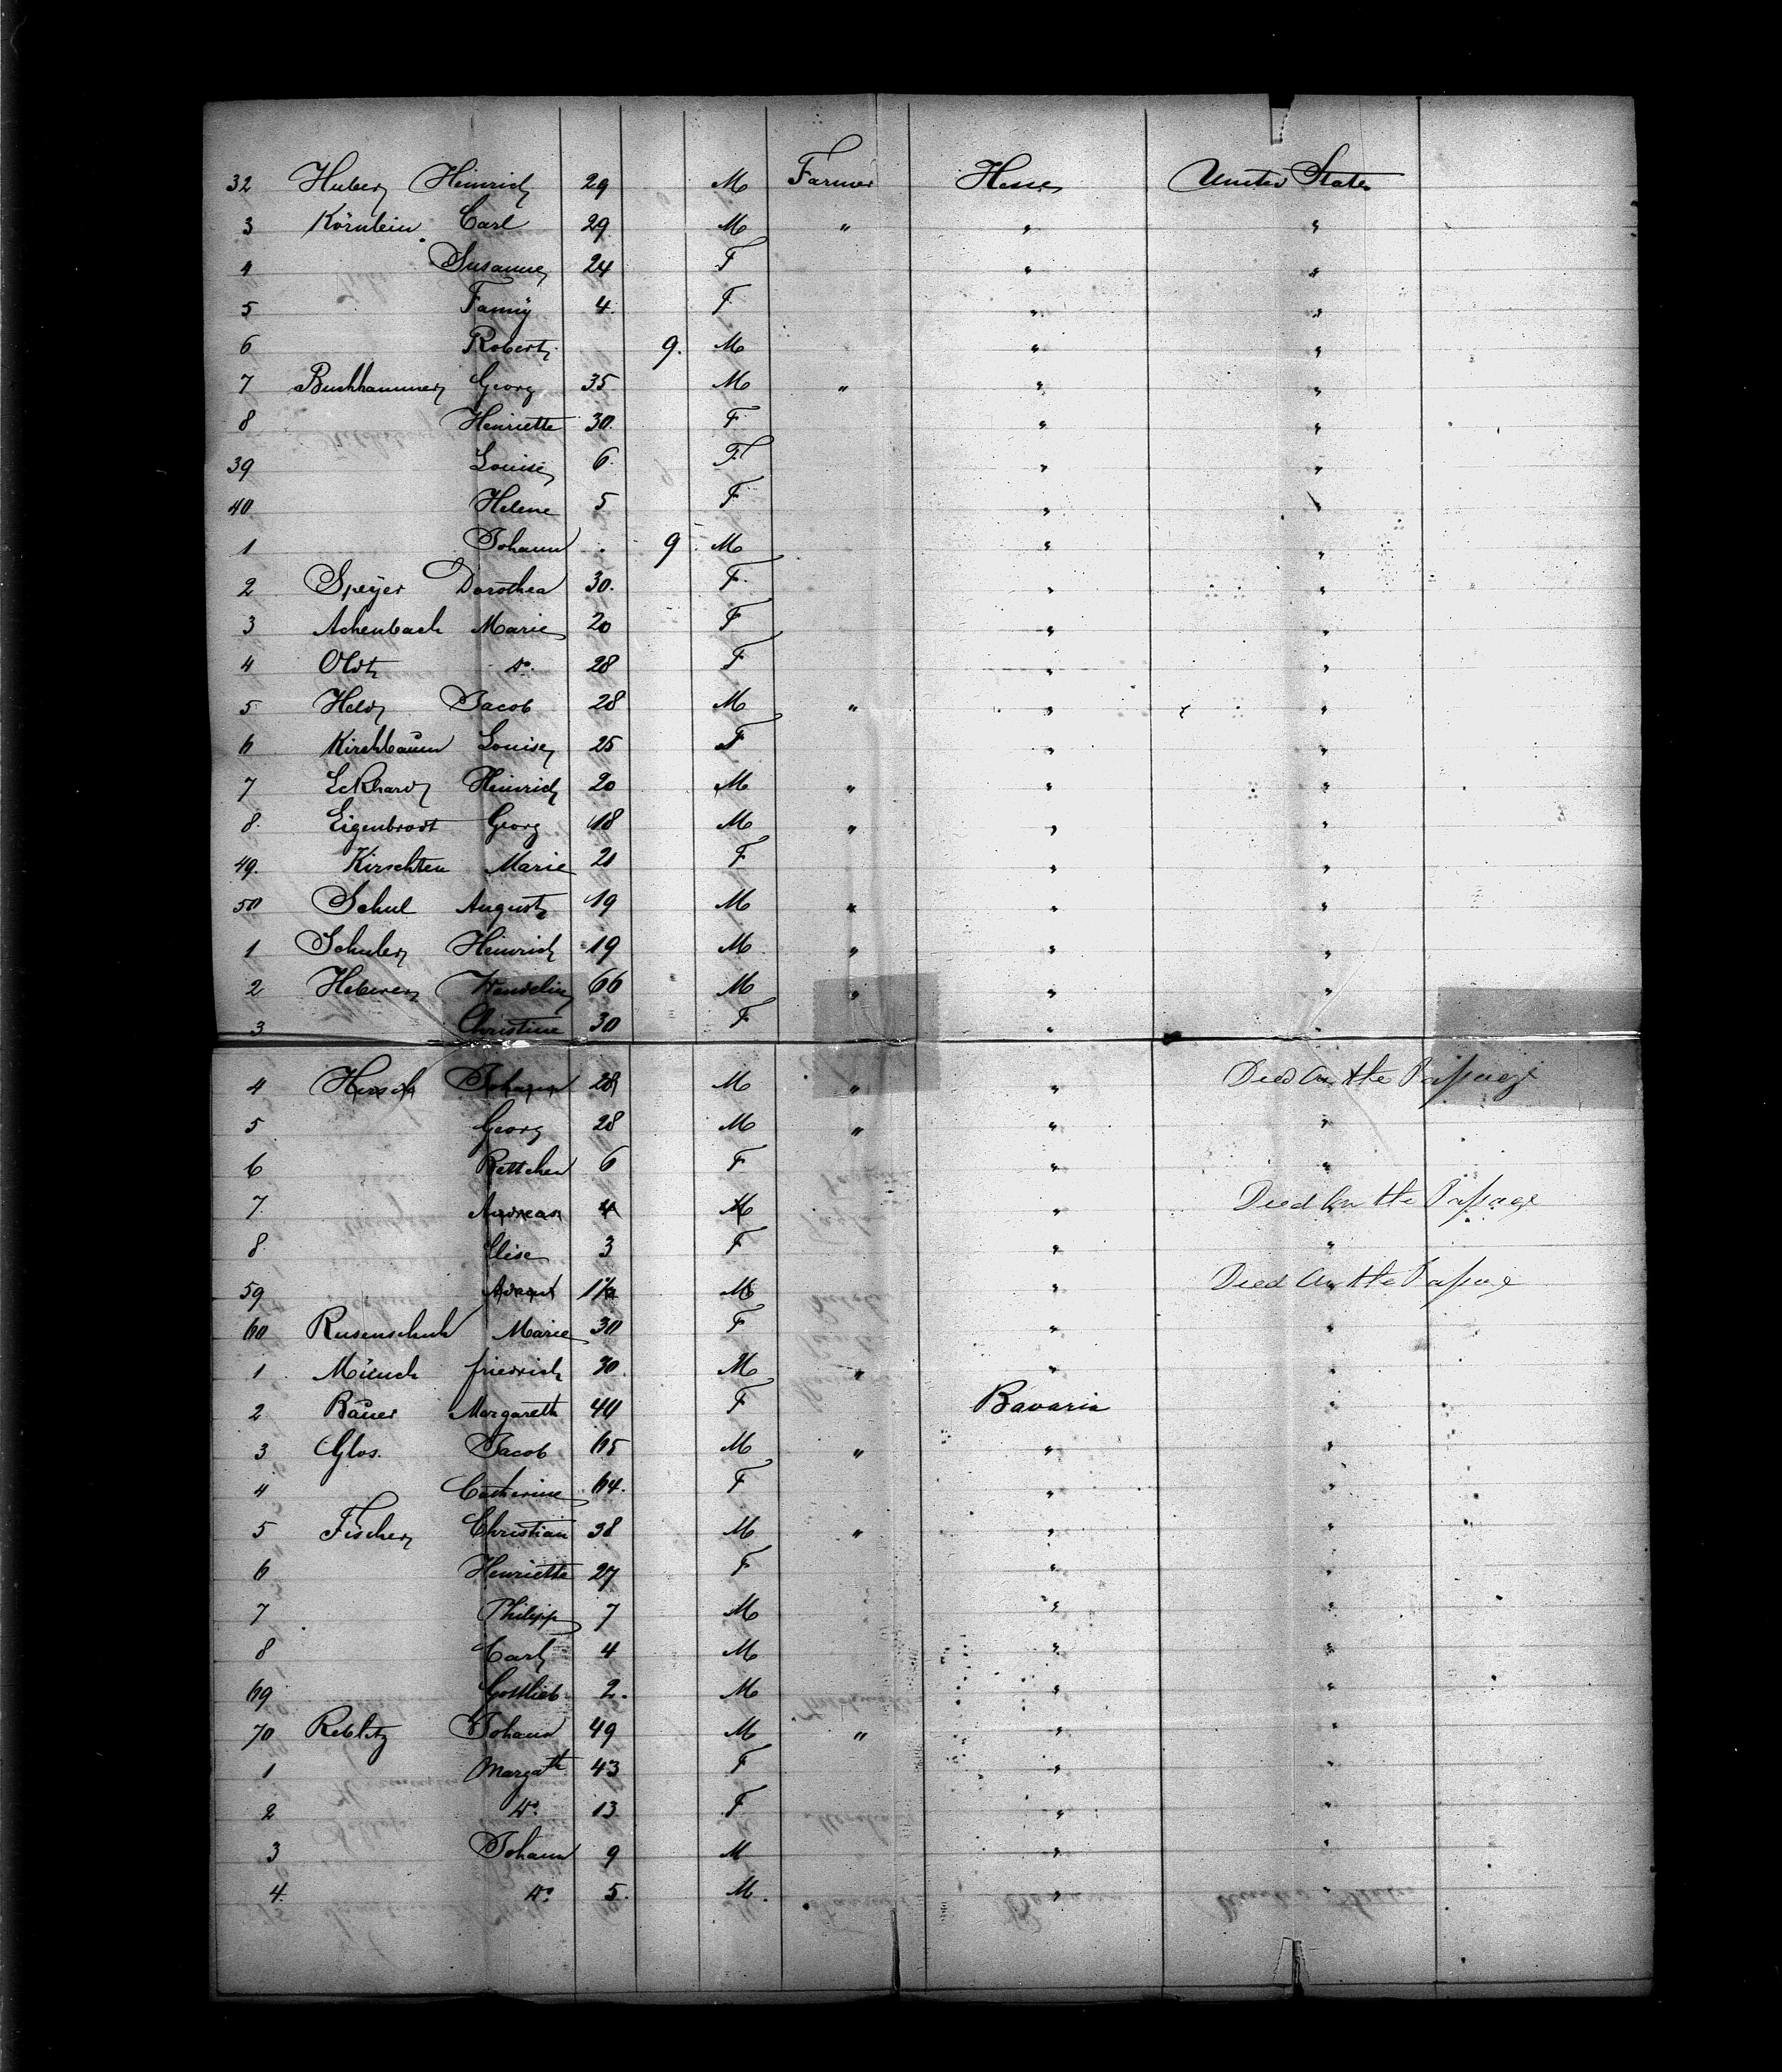 32 Huber Heinrich 29 M Farmer Hesse United States
3 Körnlein Carl 29 M " " "
4 Susanne 24 F " "
5 Fanny 4 F " "
6 Robert 9. M " "
7 Buchhammer Georg 35 M " " "
8 Henriette 30 F " "
39 Louise 6 F " "
40 Helene 5 F "
1 Johann 9 M " "
2 Speyer Dorothea 30. F " "
3 Achenbach Marie 20 F " "
4 Oldt do. 28 F " "
5 Held Jacob 28 M " " "
6 Kirchbaum Louise 25 F " "
7 Eckhard Heinrich 20 M " " "
8. Eigenbrodt Georg 18 M " " "
49. Kirschten Marie 21 F " "
50 Schul August 19 M " " "
1 Schuler Heinrich 19 M " " "
2 Heberer Wendelin 66 M " " "
3 Christine 30 F " "
4 Hirsch Johann 28 M " " Died on the Passage
5 Georg 28 M " " "
6 Bettchen 6 F " "
7 Andreas 4 M " Died on the Passage
8. Elise 3 F " "
59 Adam 1½ M " Died on the Passage
60 Marie 30 F " "
1 Münch friedrich 30. M " " "
2 Bauer Margareth 40 F Bavaria "
3 Glos. Jacob 65 M " " "
4 Catherine 64. F " "
5 Fischer Christian 38 M " " "
6 Henriette 27 F " "
7 Philipp 7 M " "
8 Carl 4 M " "
69 Gottlieb 2. M " "
70 Reblitz Johann 49 M " " "
1 Margath 43 F " "
2 do. 13 F " "
3 Johann 9 M " "
4. do. 5. M. " "